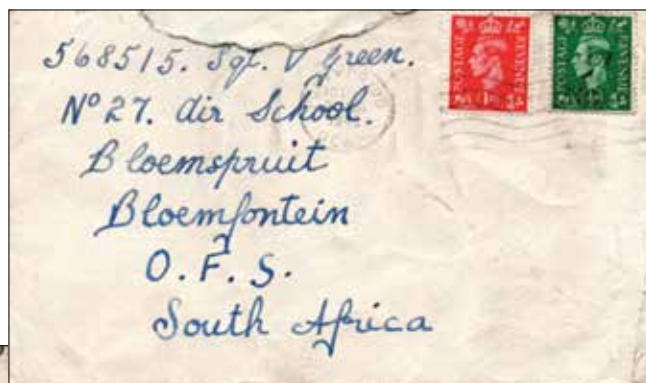 568515. Sgt. V Green.
Nº 27. Air School.
Bloemspruit
Bloemfontein
O.F.S.
South Africa
POSTAGE REVENUE
POSTAGE REVENUE